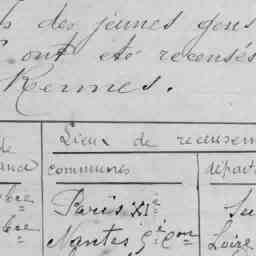 des jeunes gens
ont été recensés
Rennes.
Lieux de recensem
de
communes
départ
bre
Paris XIe
Se
bre
Nantes 6e Con
Loire